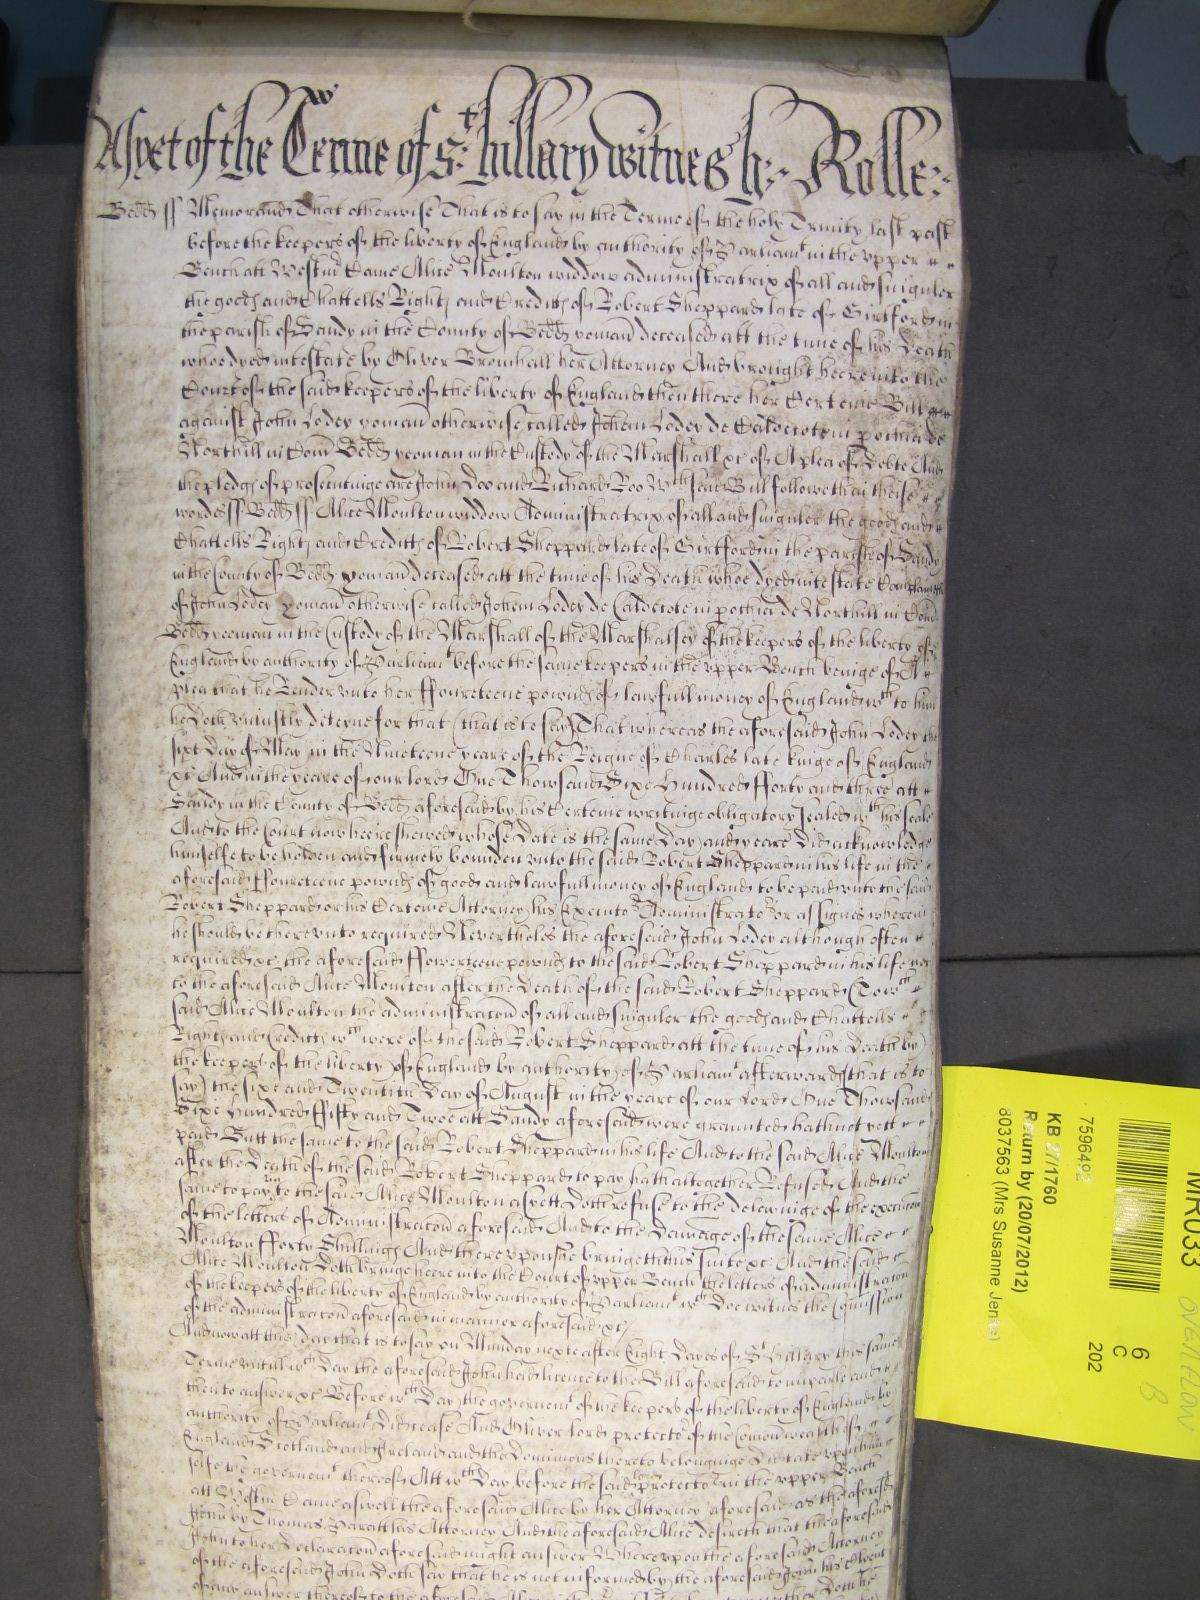 As yet of the Terme of St: hillary witnes h: Rolle:
Bedd ss Memorand That otherwise That is to say in the Terme of the holy Trinity last past
before the keepers of the liberty of England by authority of Parliamt in the vpper
Bench att Westmr Came Alice Moulton widdow administratrix of all and singuler
the goods and Chattells Rights and Creditts of Robert Sheppard late of Girtford in
the parish of Sandy in the County of Bedd yoman deceased att the time of his Death
whoe dyed intestate by Oliver Bromhall her Attorney And brought heere into the
Court of the said keepers of the liberty of England then there her Certeine Bill
against John Lodey yoman otherwise called Johem Lodey de Caldecote in pochia de
Northill in Com Bedd yeoman in the Custody of the Marshall xc of A plea of Debte And
the pledgs of prosecutinge are John Doo and Richard Roo wch said Bill followeth in theise
wordes ss Bedd ss Alice Moulton widdow Administratrix of all and singuler the goods and
Chattells Rights and Creditts of Robert Sheppard late of Girtford in the parish of Sandy
in the County of Bedd yoman deceased att the time of his Death whoe dyed intestate Complaineth
of John Lodey yoman otherwise called Johem Lodey de Caldecote in pochia de Northill in Com
Bedd yeoman in the Custody of the Marshall of the Marshalsey of the keepers of the liberty of
England by authority of Parliamt before the same keepers in the vpper Bench beinge of A
plea that he Render vnto her ffoureteene pownds of lawfull money of England wch to him
he doth vniustly deteyne for that (that is to say) That whereas the aforesaid John Lodey the
sixt Day of May in the Nineteene yeare of the Reigne of Charles late kinge of England
xc And in the yeare of our lord One Thowsand Sixe Hundred fforty and three att
Sandy in the County of Bedd aforesaid by his Certeine writinge obligatory sealed wth his seale
And to the Court now heere shewed whose Date is the same Day and yeare Did acknowledge
himselfe to be holden and firmely bounden vnto the said Robert Sheppard in his life in the
aforesaid ffoureteene pownds of good and lawfull money of England to be paid vnto the said
Robert Sheppard or his Certeine Attorney his Executors Administrators or assignes when
he should be there vnto required Nevertheles the aforesaid John Lodey although often
required xc the aforesaid ffowerteene pownds to the said Robert Sheppard in his life nor
to the aforesaid Alice Moulton after the Death of the said Robert Sheppard (To wch
said Alice Moulton the administracon of all and singuler the goods and Chattells
Rights and Creditts wch were of the said Robert Sheppard att the time of his Death by
the keepers of the liberty of England by authority of Parliamt afterwards (that is to
say) the sixe and Twentith Day of August in the yeare of our Lord One Thowsand
Sixe Hundred ffifty and Twoe att Sandy aforesaid were graunted) hath not yett
paid Butt the same to the said Robert Sheppard in his life And to the said Alice Moulton
after the Death of the said Robert Sheppard to pay hath altogether Refused And the
same to pay to the said Alice Moulton as yett doth refuse to the delayinge of the execucon
of the letters of Administracon aforesaid And to the Damage of the same Alice
Moulton fforty Shillings And therevpon she bringeth this suite xc And the said
Alice Moulton doth bringe heere into the Court of vpper Bench the letters of administracon
of the keepers of the liberty of England by authority of Parliamt wch doe witnes the Comission
of the administracon aforesaid in manner aforesaid xc
And now att this day that is to say on Munday next after Eight dayes of St Hillary this same
Terme vntill wch Day the aforesaid John had licence to the Bill aforesaid to imparle and
then to answer xc Before wch Day the governemt of the keepers of the liberty of England by
authority of Parliamt Did cease And Oliver lord protector of the Comonwealth of
England Scotland and Ireland and the Dominions thereto belonginge Did take vpon him
selfe the governemt thereof Att wch Day before the said lord protector in the vpper Bench
att Westm Came aswell the aforesaid Alice by her Attorney aforesaid as the aforesaid
John by Thomas his Attorney And the aforesaid Alice desireth that the aforesaid
John to her Declaracon aforesaid might answer Wherevpon the aforesaid Attorney
of the aforesaid John doth say that he is not informed by the aforesaid John his Client
of any answer thereof to the aforesaid
OVERFLOW
6
C
202
7596492
KB 27/1760
Return by (20/07/2012)
8037563 (Mrs Susanne Jen